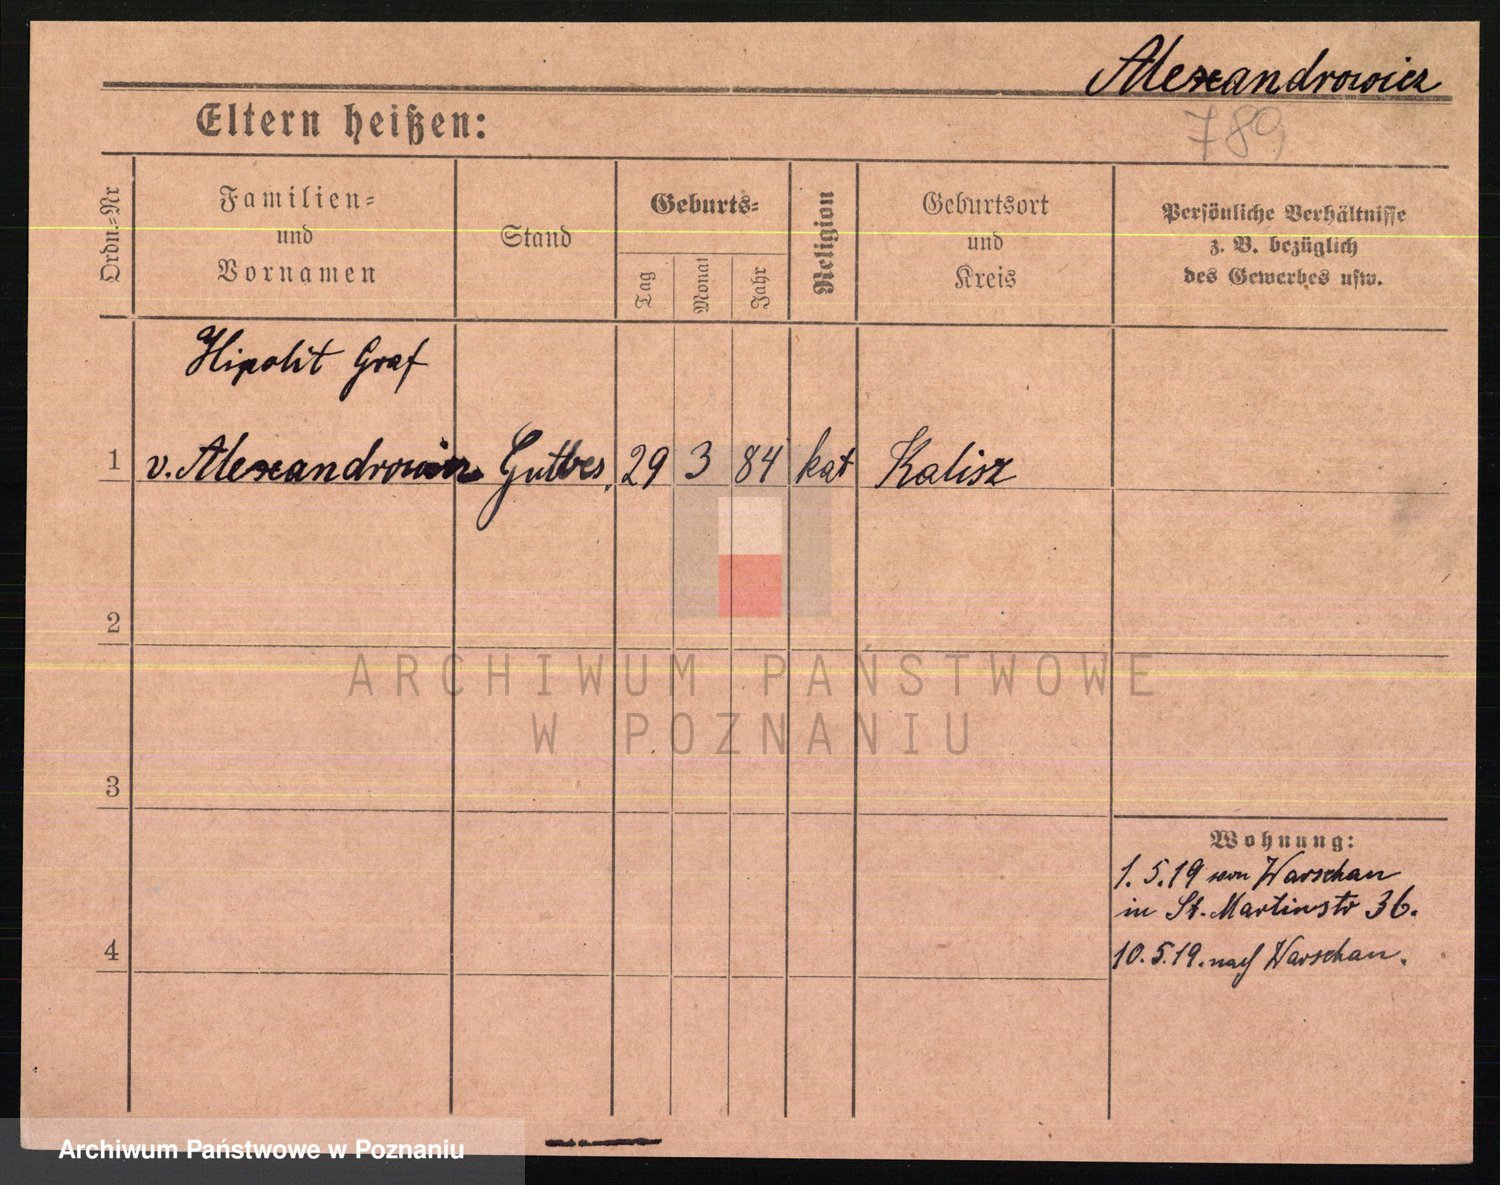 Alexandrowicz
789
Eltern heißen:
Ordn.-Nr
Familien-
und
Vornamen
Stand
Geburts-
Tag
Monat
Jahr
Religion
Geburtsort
und
Kreis
Persönliche Verhältnisse
z. B. bezüglich
des Gewerbes usw.
Hipolit Graf
1 v. Alexandrowicz Gutbes. 29 3 84 kat Kalisz
2
ARCHIWUM PAŃSTWOWE
W POZNANIU
3
Wohnung:
1.5.19 von Warschau
in St. Martinstr 36.
4
10.5.19. nach Warschau.
Archiwum Państwowe w Poznaniu